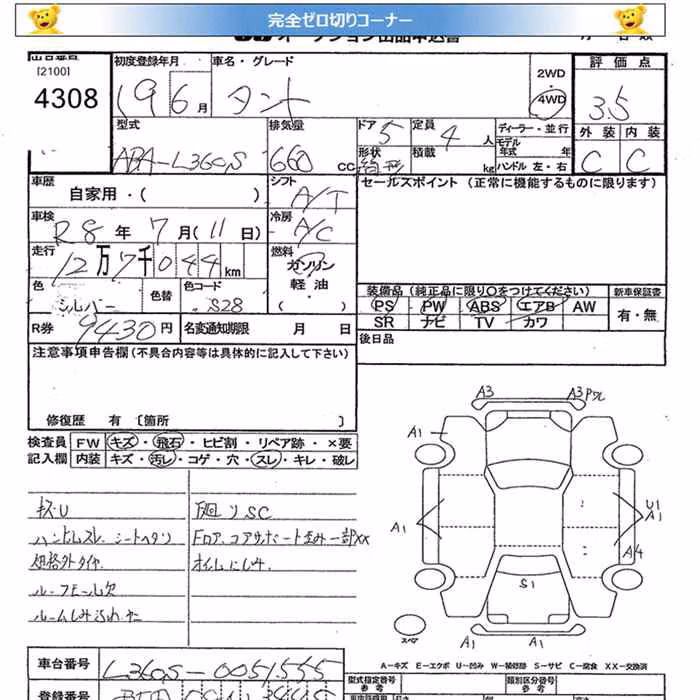 完全ゼロ切りコーナー
オークション出品申込書
[2100]
4308
初度登録年月
19 6月
車名・グレード
タント
2WD
4WD
評価点
3.5
型式
ABA-L360S
排気量
660 CC
ドア
5
形状
定員
4人
積載
kg
ディーラー・並行
モデル年式 年式
ハンドル左・右
外装 内装
C C
車歴
自家用・( )
シフト
A/T
セールスポイント(正常に機能するものに限ります)
車検
R8年7月(11日)
冷房
A/C
走行
12万7千044km
燃料
ガソリン
軽油
( )
色
シルバー
色替
色コード
S28
装備品(純正品に限り○をつけてください)
新車保証書
PS PW ABS エアB AW
有・無
SR ナビ TV カワ
R券
9430円
名変通知期限 月 日
後日品
注意事項申告欄(不具合内容等は具体的に記入して下さい)
修復歴 有〔箇所 〕
検査員記入欄
FW キズ・飛石・ヒビ割・リペア跡・×要
内装 キズ・汚レ・コゲ・穴・スレ・キレ・破レ
キズU
ハンドルスレ、シートヘタリ
規格外タイヤ
ルーフモール欠
ルームしみ汚れ大
下廻りSC
Fロア、コアサポート歪み一部XX
オイルにじみ
A3
A3 Pワレ
A1
A1
U1
A1
A4
S1
A1
A1
スペア
A-キズ E-エクボ U-凹み W-補修跡 S-サビ C-腐食 XX-交換済
車台番号
L360S-0051555
登録番号
型式指定番号
参考
類別区分番号
参考